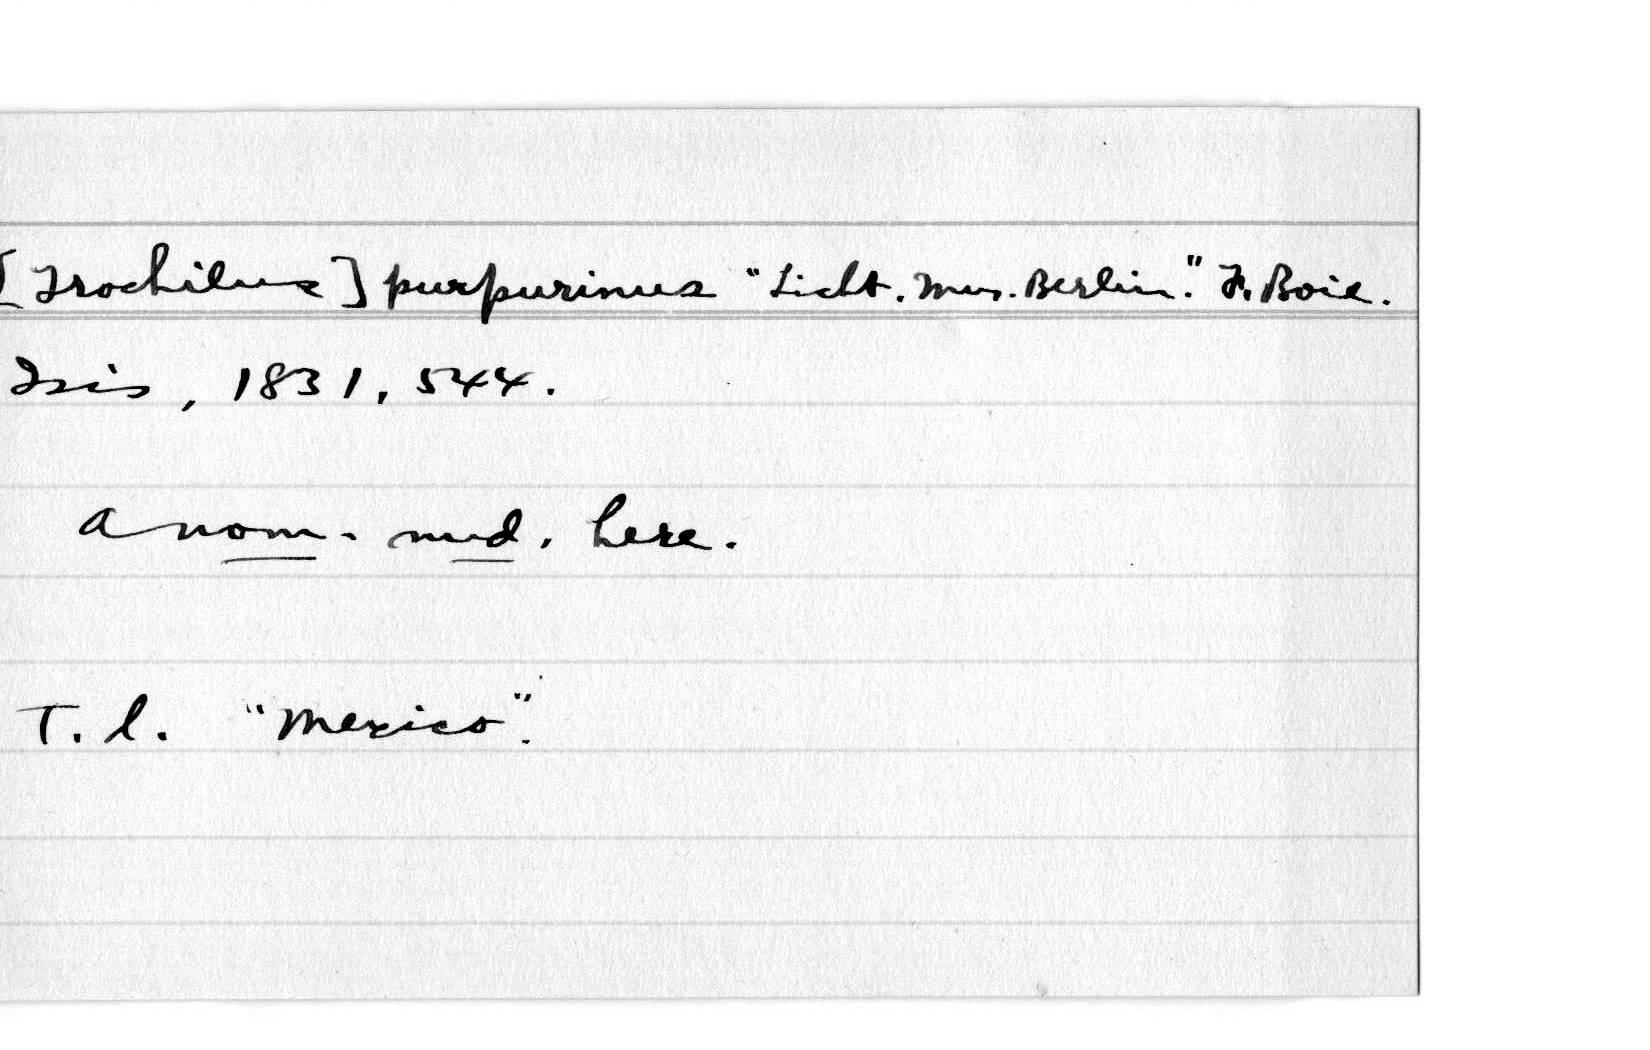 [Trochilus] purpurinus "Licht. Mus. Berlin." F. Boie.
Isis, 1831, 544.
A nom. nud. here.
T. l. "Mexico".